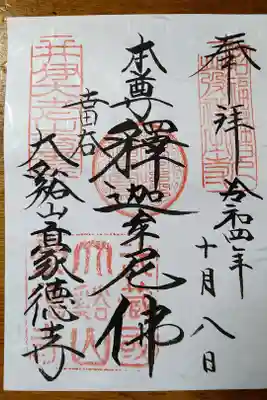 奉拝
令和四年
十月八日
本尊 釋迦牟尼佛
世田谷
大谿山豪德寺
大谿山